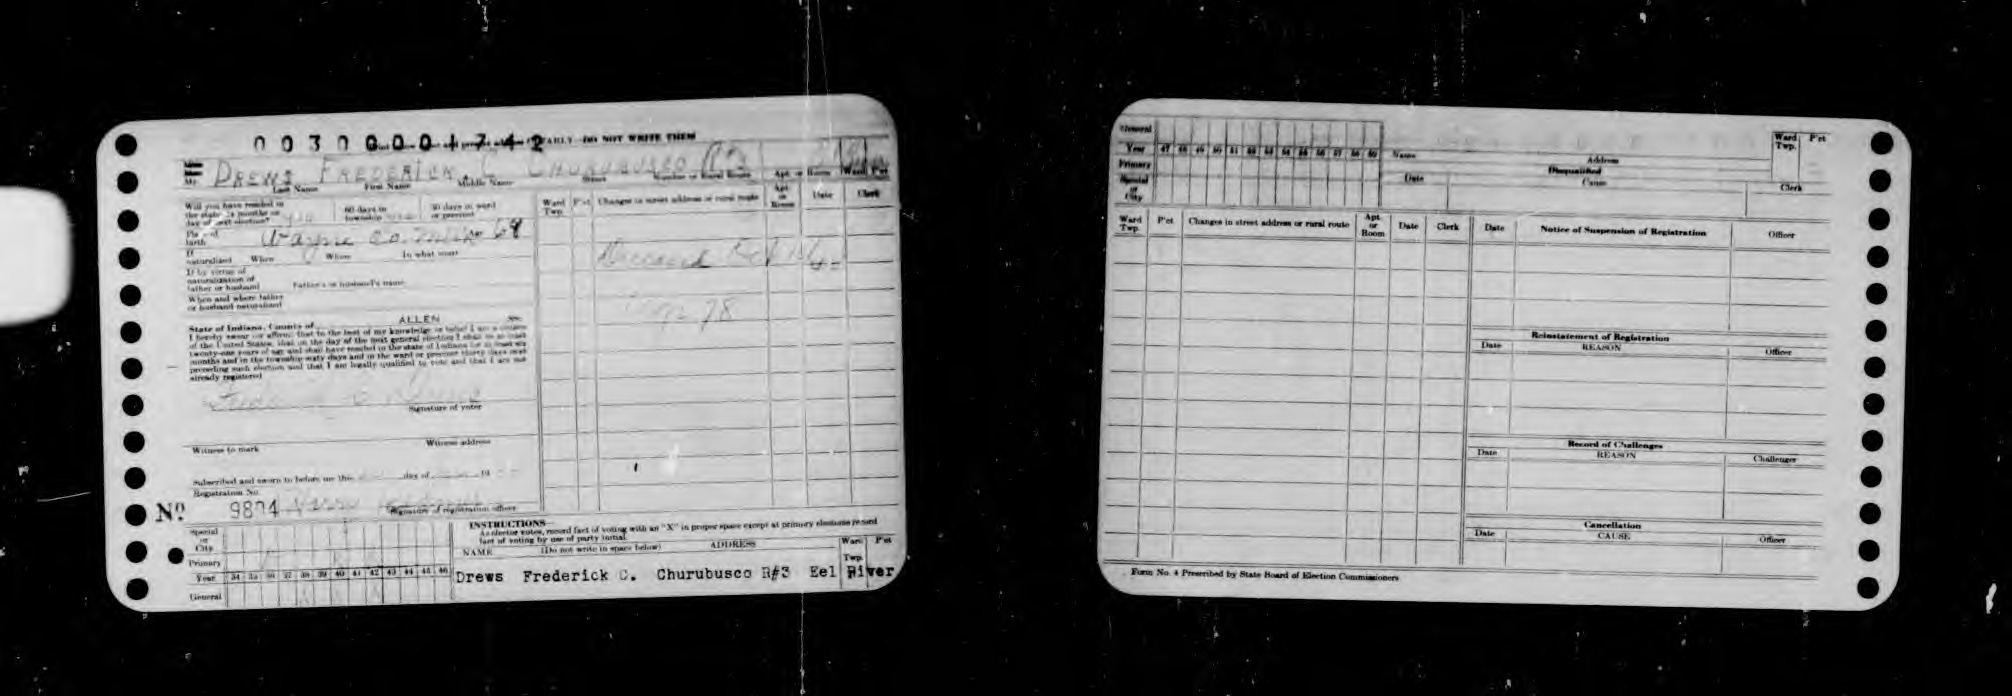 00300001742
CLEARLY DO NOT WRITE THEM
Mr. DREWS FREDERICK C CHURUBUSCO R#3
Last Name First Name Middle Name Street Number or Rural Route Apt. or Room Ward P'ct
Will you have resided in the state 6 months on day of next election? yes 60 days in township 30 days in ward or precinct
Place of birth Wayne Co. Age 69
If naturalized When Where In what court
If by virtue of naturalization of father or husband Father's or husband's name
When and where father or husband naturalized
State of Indiana, County of ALLEN ss:
I hereby swear or affirm that to the best of my knowledge or belief I am a citizen
of the United States, that on the day of the next general election I shall be at least
twenty-one years of age and shall have resided in the state of Indiana for at least six
months and in the township sixty days and in the ward or precinct thirty days next
preceding such election and that I am legally qualified to vote and that I am not
already registered
Signature of voter
Witness to mark Witness address
Subscribed and sworn to before me this day of 19
Registration No.
Nº 9874 Signature of registration officer
Ward Twp. P'ct Changes in street address or rural route Apt. or Room Date Clerk
Deceased
Special or City
Primary
Year 34 35 36 37 38 39 40 41 42 43 44 45 46
General
INSTRUCTIONS—
As elector votes, record fact of voting with an "X" in proper space except at primary elections record
fact of voting by use of party initial.
NAME (Do not write in space below) ADDRESS Ward Twp. P'ct
Drews Frederick C. Churubusco R#3 Eel River
General
Year 47 48 49 50 51 52 53 54 55 56 57 58 59
Primary
Special or City
Name Address Ward Twp. P'ct
Disqualified
Date Cause Clerk
Ward Twp. P'ct Changes in street address or rural route Apt. or Room Date Clerk
Date Notice of Suspension of Registration Officer
Reinstatement of Registration
Date REASON Officer
Record of Challenges
Date REASON Challenger
Cancellation
Date CAUSE Officer
Form No. 4 Prescribed by State Board of Election Commissioners